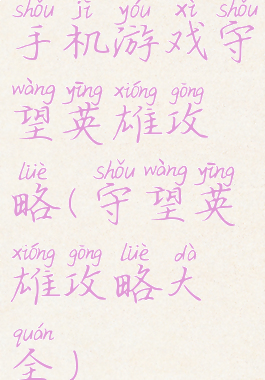 shǒu jī yóu xì shǒu
手机游戏守
wàng yīng xióng gōng
望英雄攻
lüè shǒu wàng yīng
略(守望英
xióng gōng lüè dà
雄攻略大
quán
全)